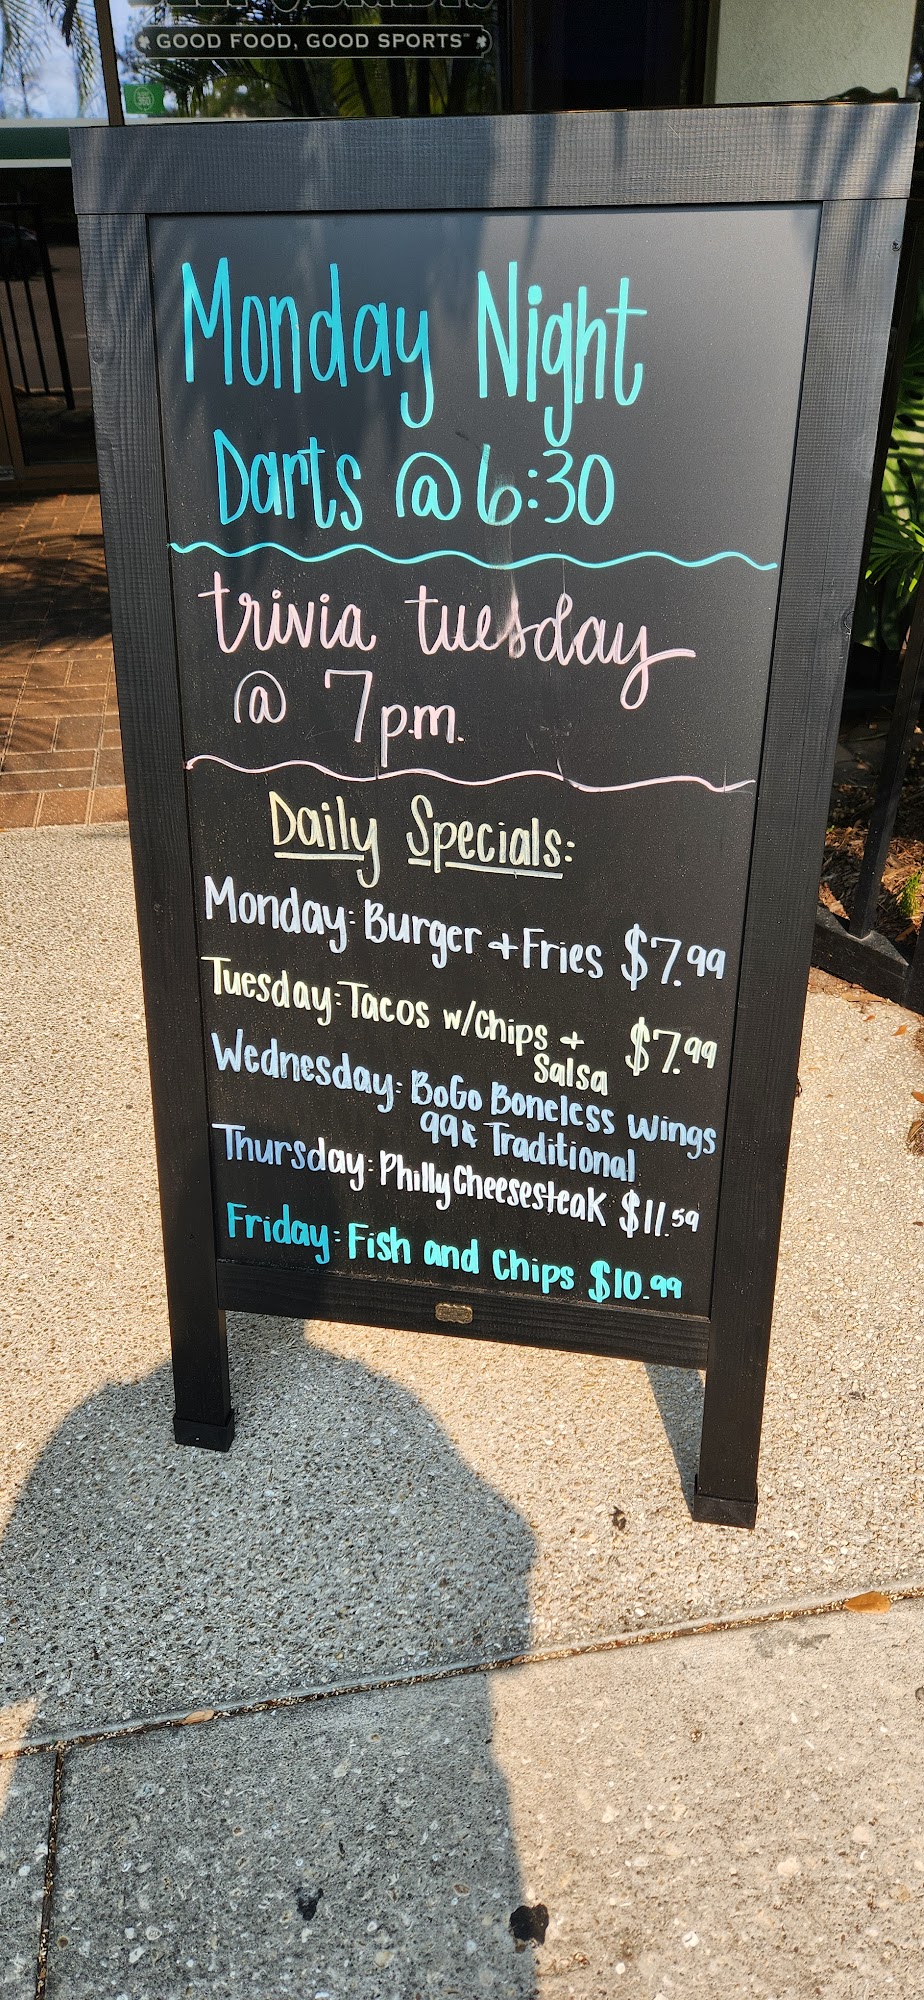 GOOD FOOD, GOOD SPORTS
Monday Night
Darts @ 6:30
trivia tuesday
@ 7p.m.
Daily Specials:
Monday: Burger + Fries $7.99
Tuesday: Tacos w/chips + $7.99
Salsa
Wednesday: BoGo Boneless wings
99¢ Traditional
Thursday: Philly Cheesesteak $11.59
Friday: Fish and Chips $10.99